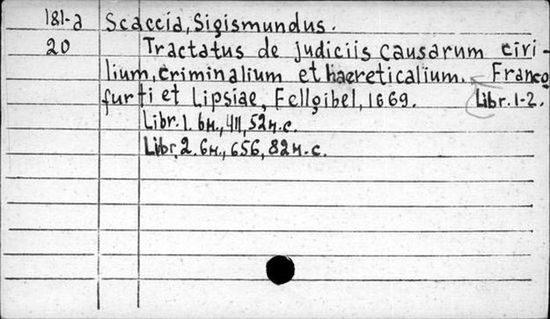 181-a Scaccia, Sigismundus.
20 Tractatus de judiciis causarum civi-
lium, criminalium et haereticalium. Franco
furti et Lipsiae, Fellgibel, 1669. Libr. 1-2.
Libr. 1. 6н., 411, 52н.с.
Libr. 2. 6н., 656, 82н.с.